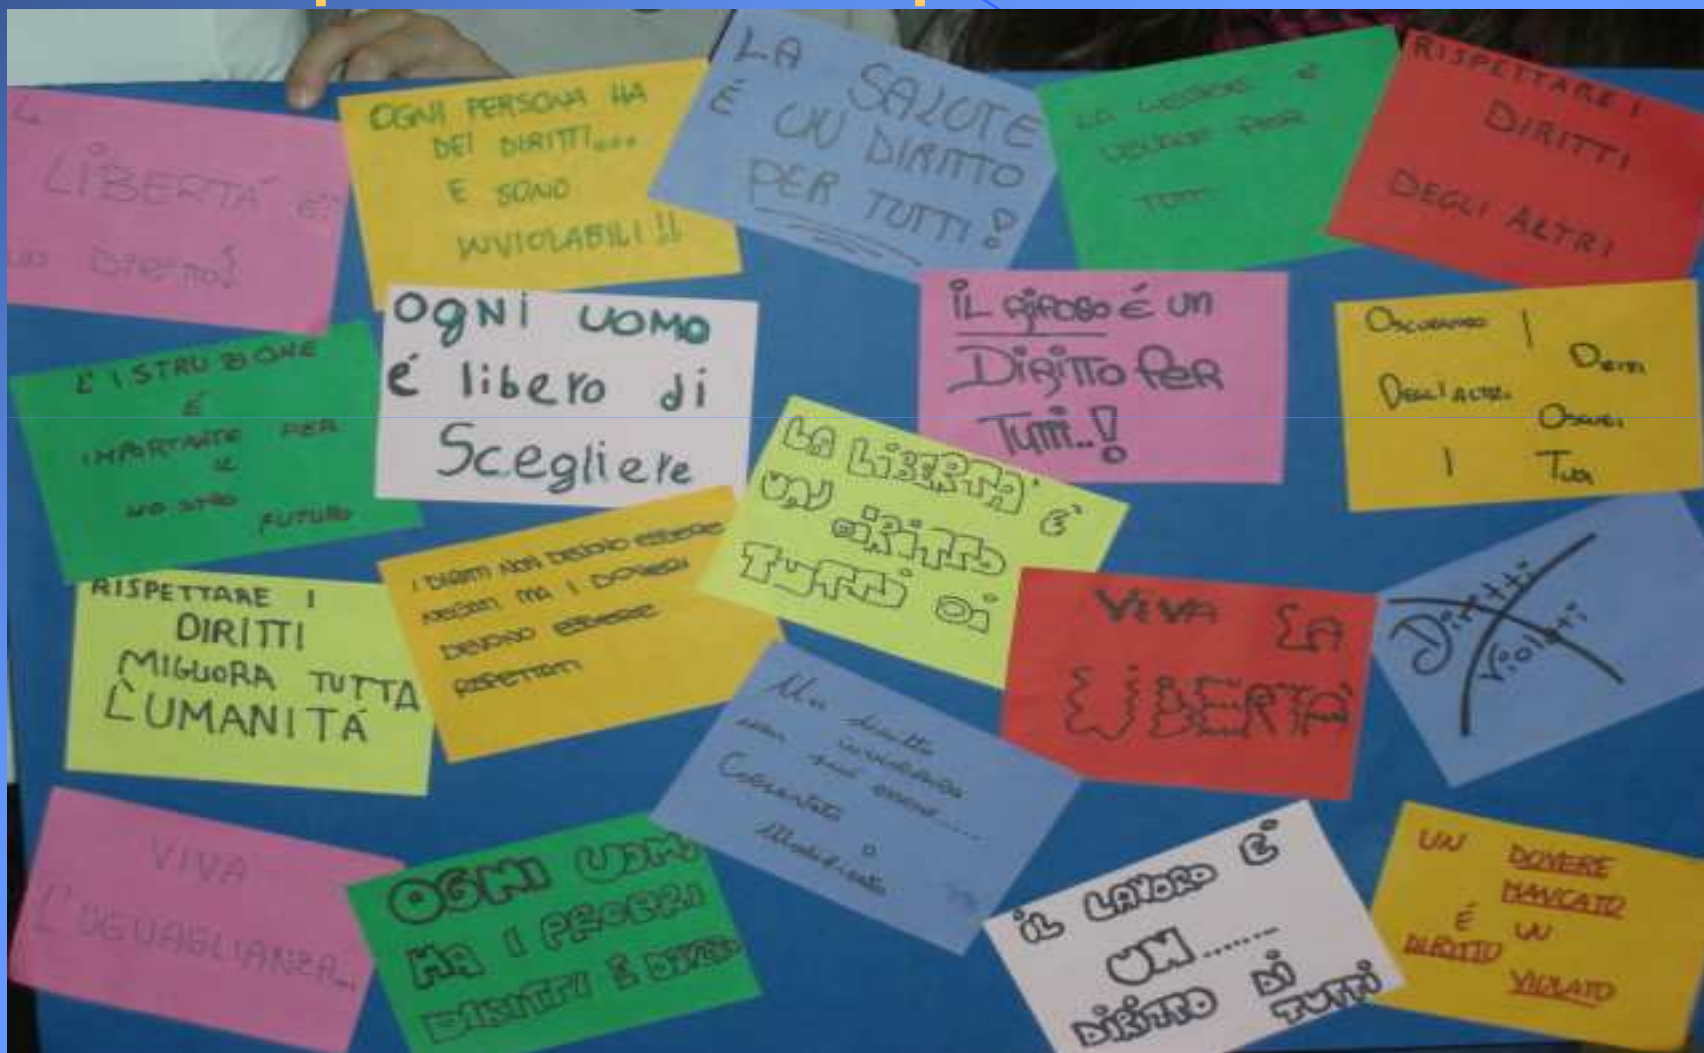 LA
LIBERTÁ É
UN DIRITTO!
OGNI PERSONA HA
DEI DIRITTI...
E SONO
INVIOLABILI!!
LA SALUTE
É UN DIRITTO
PER TUTTI!
LA
É
PER
TUTTI
RISPETTARE I
DIRITTI
DEGLI ALTRI
L'ISTRUZIONE
É
IMPORTANTE PER
IL
NOSTRO
FUTURO
OGNI UOMO
é libero di
Scegliere
IL RIPOSO É UN
DIRITTO PER
TUTTI..!
OSCURANDO I
DIRITTI
DELL'ALTRI
OSCURI
I TUOI
LA LIBERTA' E'
UN DIRITTO
TUTTI DI
RISPETTARE I
DIRITTI
MIGLIORA TUTTA
L'UMANITÁ
I DIRITTI NON DEVONO ESSERE
NEGATI MA I DOVERI
DEVONO ESSERE
RISPETTATI
VIVA LA
LIBERTÀ
Diritti
Violati
Un diritto
inviolabile
non può essere.....
Cancellato o
Modificato
VIVA
L'UGUAGLIANZA...
OGNI UOMO
HA I PROPRI
DIRITTI E DOVERI
IL LAVORO E'
UN.......
DIRITTO DI
TUTTI
UN DOVERE
MANCATO
É UN
DIRITTO
VIOLATO